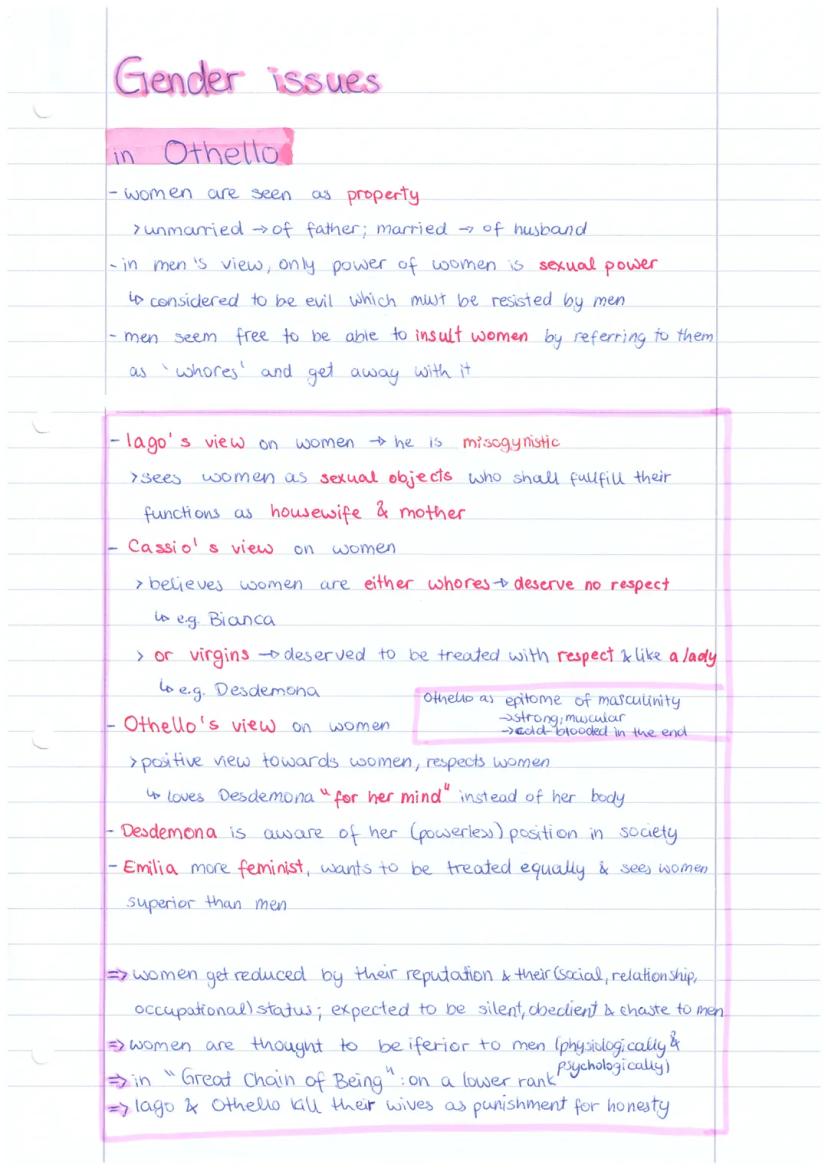 Gender issues
in Othello
- women are seen as property
> unmarried → of father; married → of husband
- in men's view, only power of women is sexual power
↳ considered to be evil which must be resisted by men
- men seem free to be able to insult women by referring to them
as 'whores' and get away with it
- Iago's view on women → he is misogynistic
> sees women as sexual objects who shall fullfill their
functions as housewife & mother
- Cassio's view on women
> believes women are either whores → deserve no respect
↳ e.g. Bianca
> or virgins → deserved to be treated with respect & like a lady
↳ e.g. Desdemona
Othello as epitome of masculinity
→ strong, muscular
→ cold-blooded in the end
- Othello's view on women
> positive view towards women, respects women
↳ loves Desdemona "for her mind" instead of her body
- Desdemona is aware of her (powerless) position in society
- Emilia more feminist, wants to be treated equally & sees women
superior than men
⇒ women get reduced by their reputation & their (social, relationship,
occupational) status; expected to be silent, obedient & chaste to men
⇒ women are thought to be iferior to men (physiologically &
psychologically)
⇒ in "Great Chain of Being": on a lower rank
⇒ Iago & Othello kill their wives as punishment for honesty